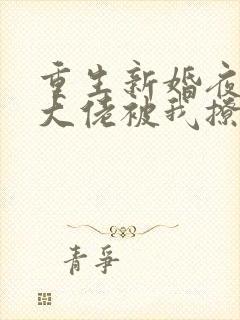 重生新婚夜
大佬被我撩
青争